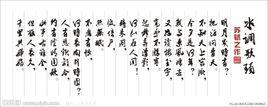 水调歌头
苏轼之作
明月几时有?
把酒问青天
不知天上宫阙
今夕是何年
我欲乘风归去
又恐琼楼玉宇
高处不胜寒
起舞弄清影
何似在人间!
转朱阁
低绮户
照无眠
不应有恨
何事长向别时圆?
人有悲欢离合
月有阴晴圆缺
此事古难全
但愿人长久
千里共婵娟